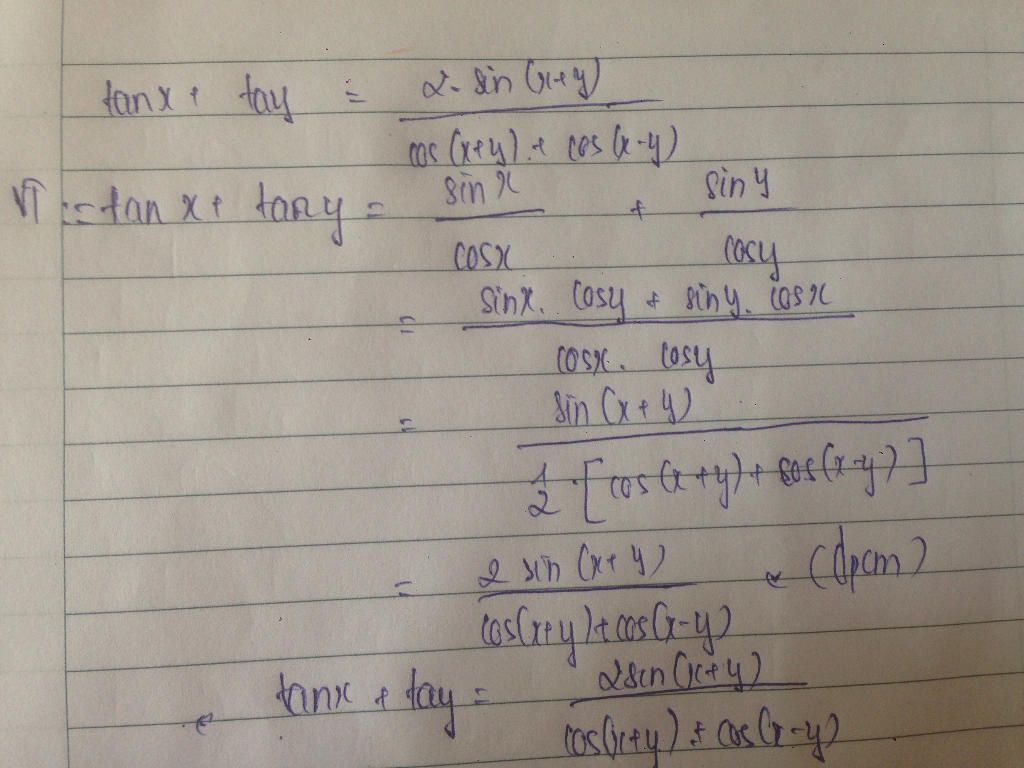 tanx + tay = 2. sin (x+y) / cos (x+y) + cos (x-y)
VT := tan x + tany = sin x / cosx + sin y / cosy
= sinx. cosy + siny. cosx / cosx. cosy
= sin (x + y) / 1/2 . [cos (x + y) + cos (x-y)]
= 2 sin (x+y) / cos(x+y) + cos(x-y) (đpcm)
tanx + tay = 2sin (x+y) / cos(x+y) + cos(x-y)